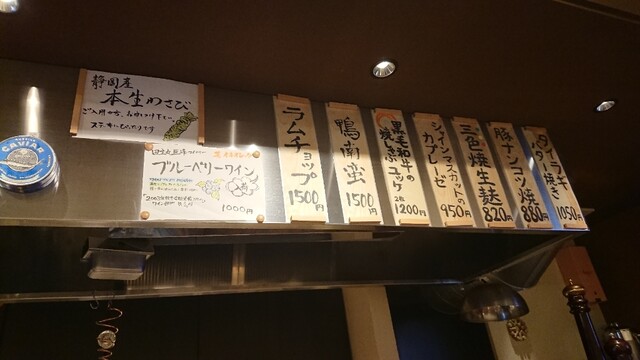 静岡産
本生わさび
ステーキにもぴったりです
CAVIAR
ブルーベリーワイン
1000円
ラムチョップ
1500円
鴨南蛮
1500円
黒毛和牛の
焼しゃぶユッケ
2枚
1200円
シャインマスカットの
カプレーゼ
950円
三色焼生麩
820円
豚ナンコツ焼
880円
タイラギ
バター焼き
1050円